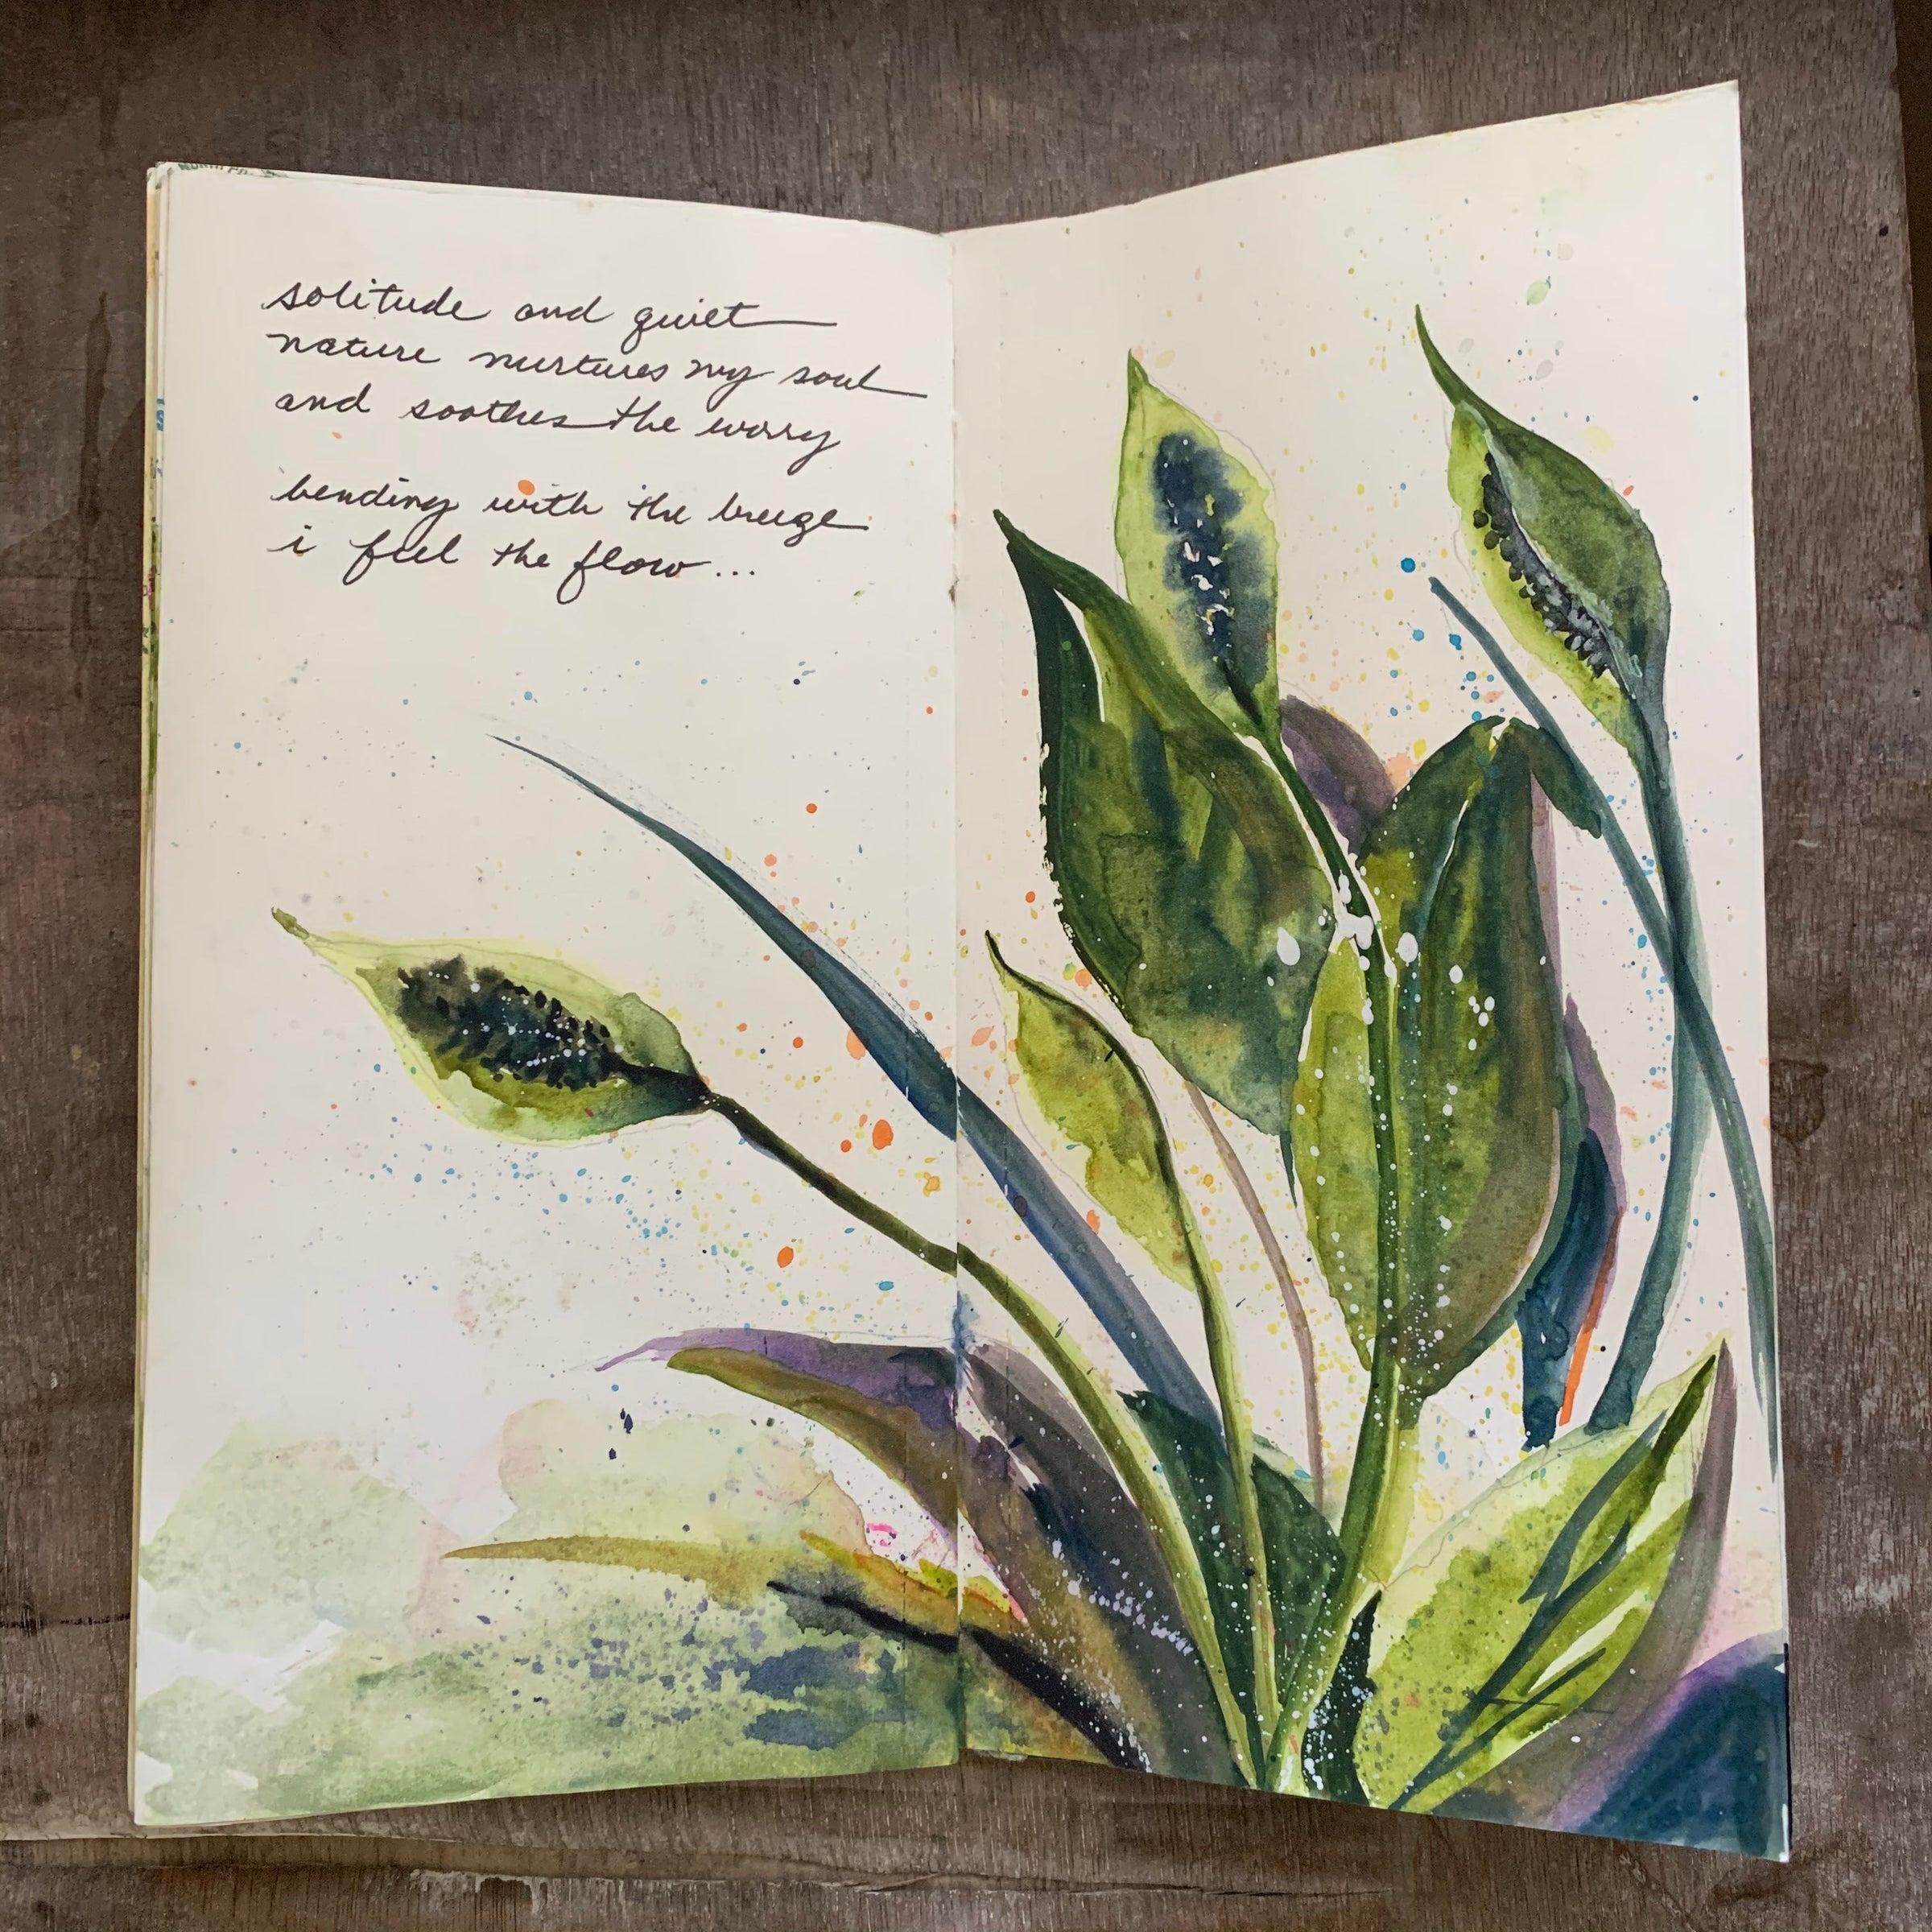 solitude and quiet
nature nurtures my soul
and soothes the worry
bending with the breeze
i feel the flow...